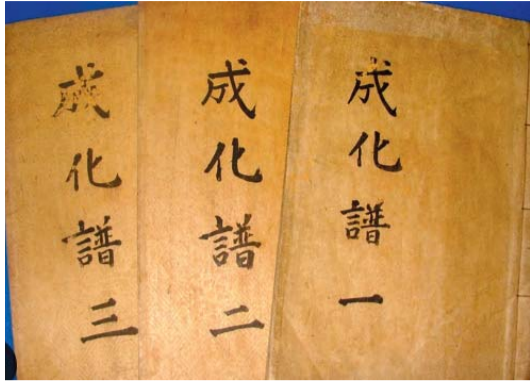 成化譜一
成化譜二
成化譜三